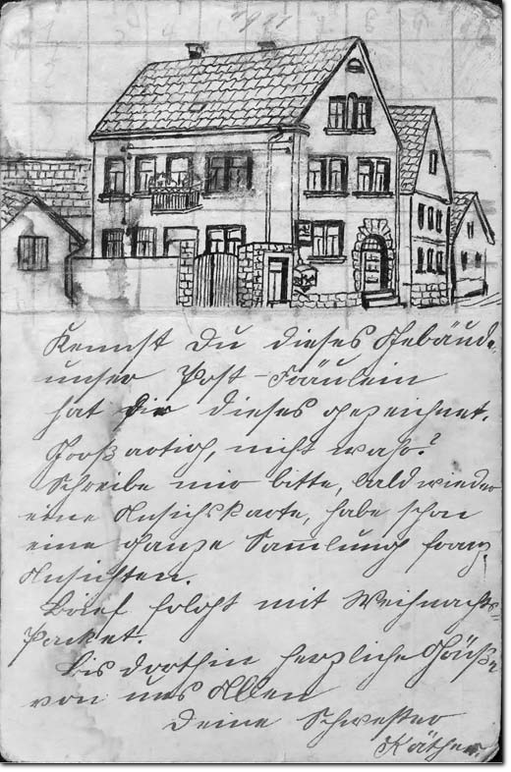 1911
Kennst Du dieses Gebäude,
unser Post-Fräulein
hat Dir dieses gezeichnet.
Großartig, nicht wahr?
Schreibe mir bitte, bald wieder
eine Ansichtskarte, habe schon
eine ganze Sammlung franz.
Ansichten.
Brief folgt mit Weihnachts-
Packet.
Bis dorthin herzliche Grüße
von uns Allen
Deine Schwester
Käthe.